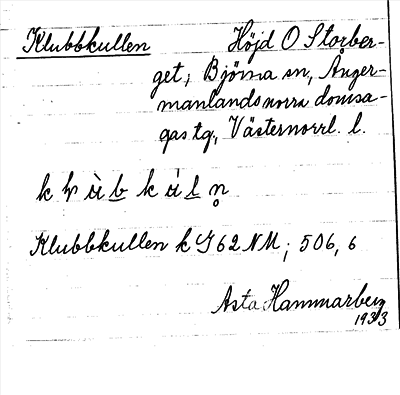 Klubbkullen Höjd O Storber-
get, Björna sn, Ånger-
manlands norra domsa-
gas tg., Västernorrl. l.
Klubbkullen k G 62 NM; 506, 6
Asta Hammarberg
1933